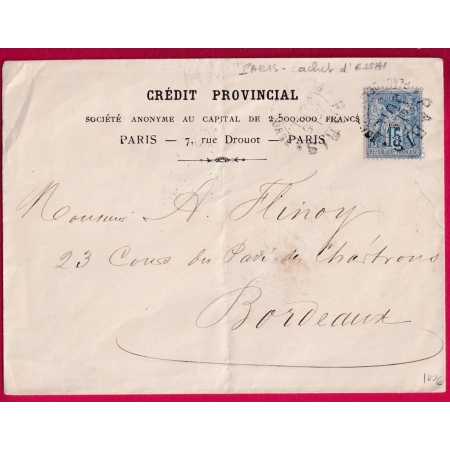 PARIS - cachet d'ESSAI
CRÉDIT PROVINCIAL
SOCIÉTÉ ANONYME AU CAPITAL DE 2.500.000 FRANCS
PARIS — 7, rue Drouot — PARIS
PARIS
PARIS
15
Monsieur A. Flinoy
23 Cours du Pavé des Chartrons
Bordeaux